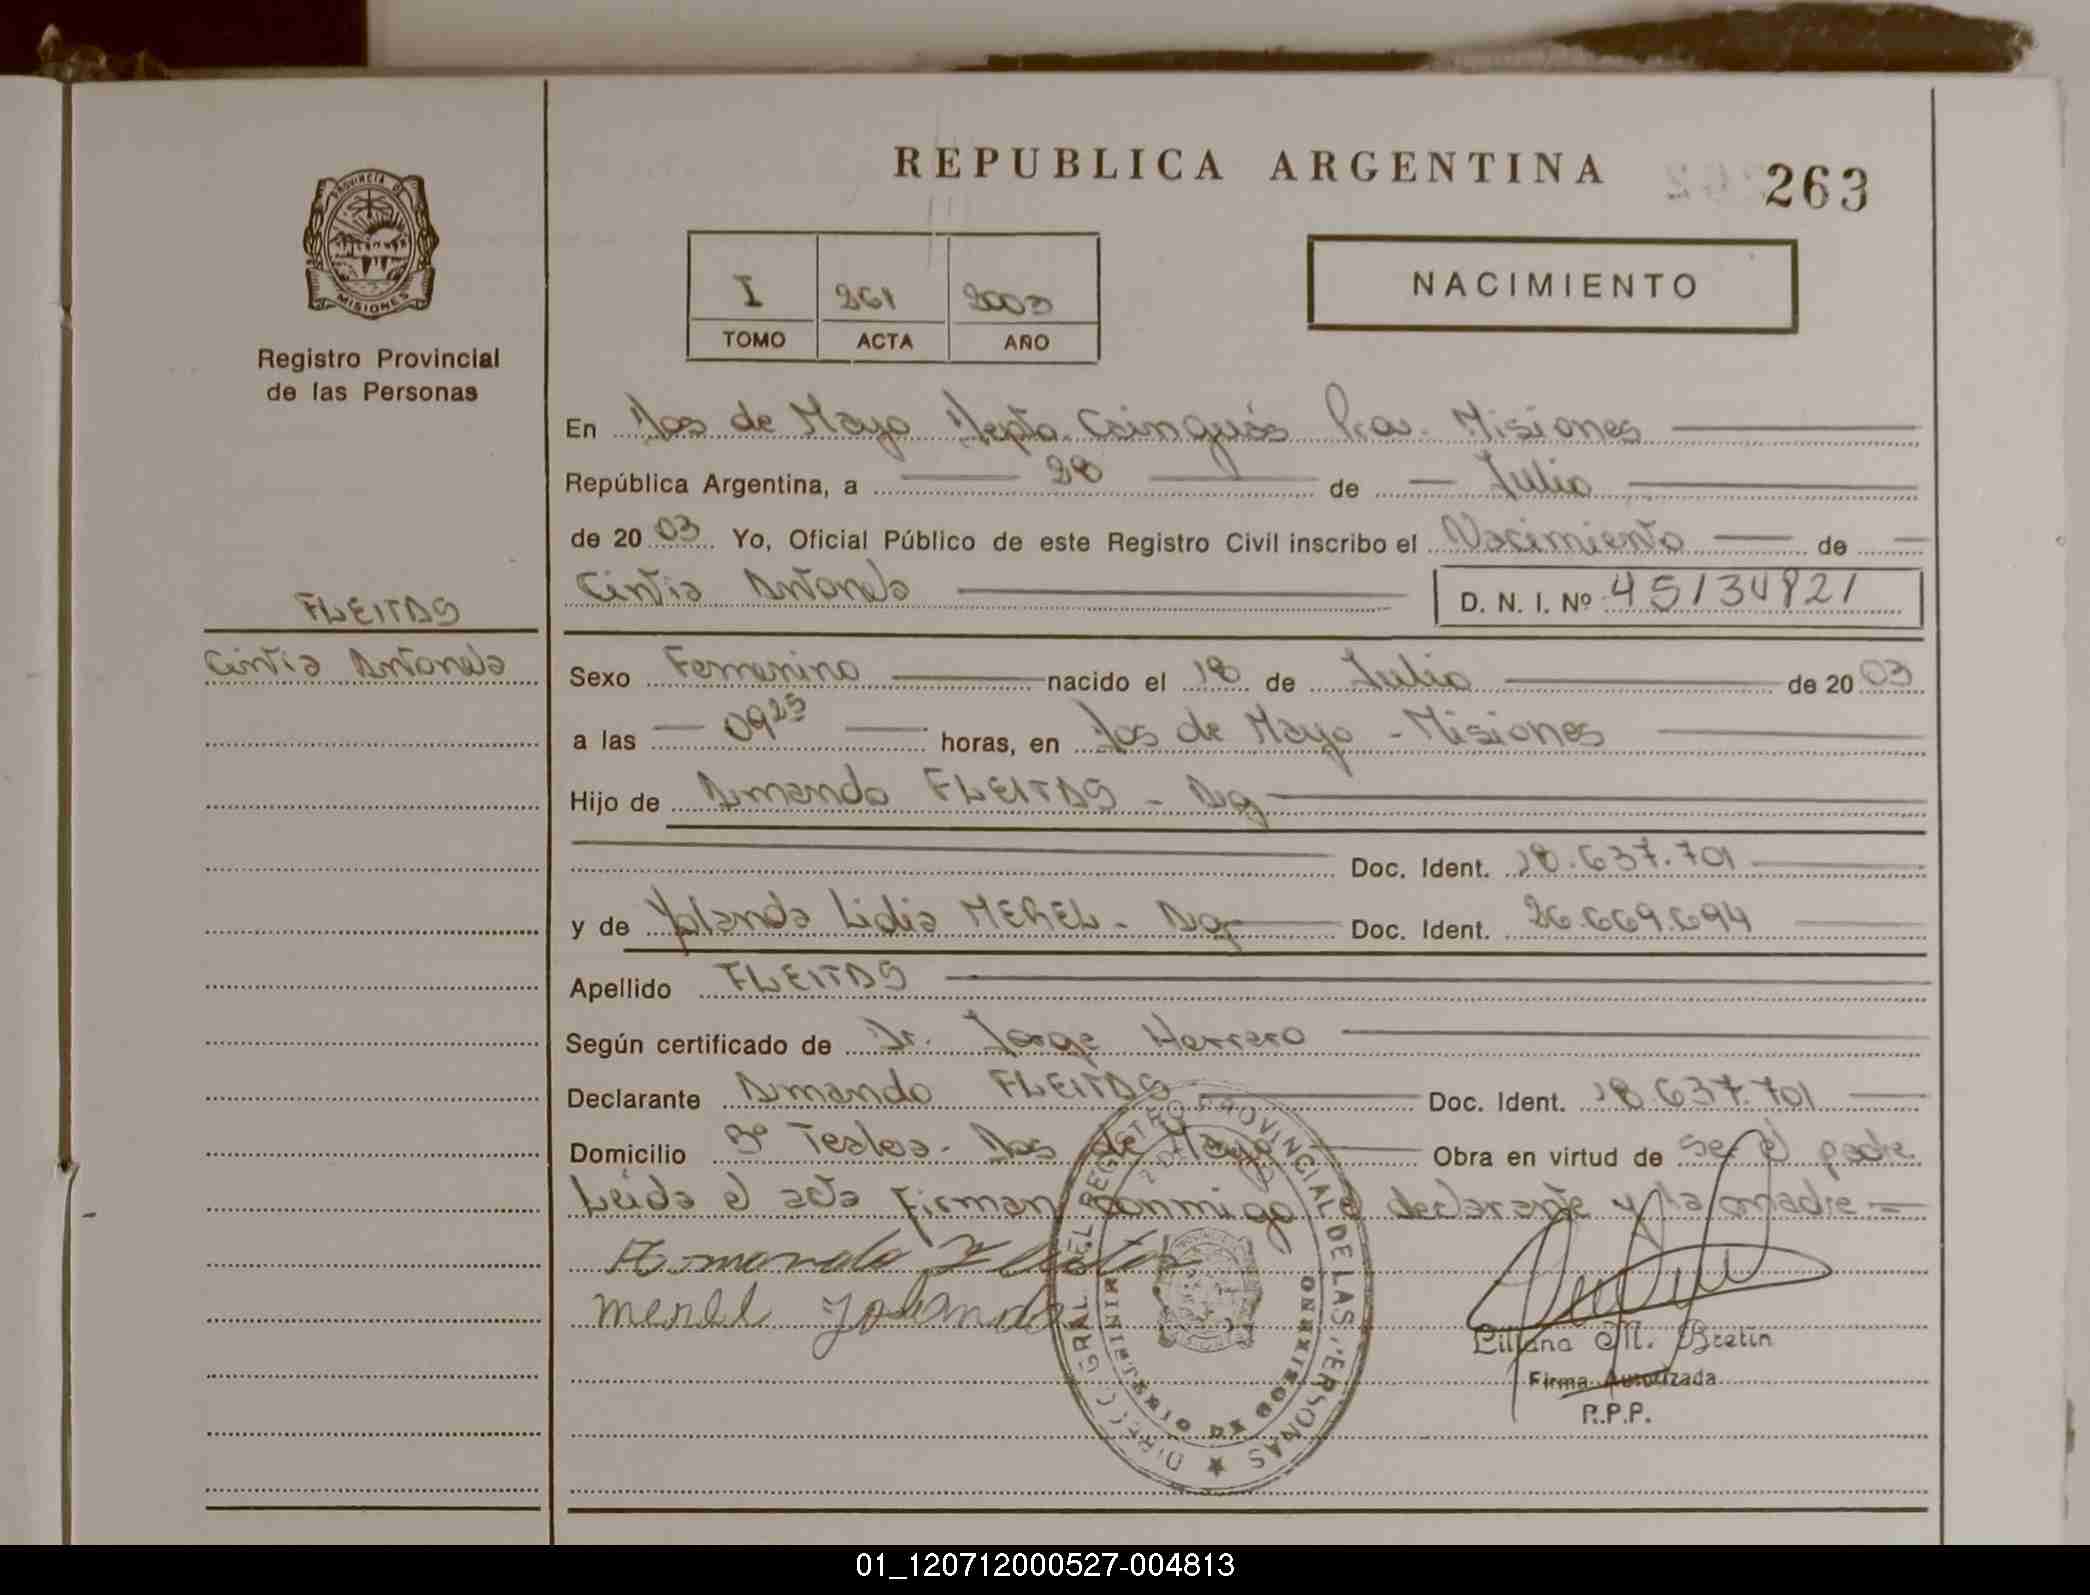 REPUBLICA ARGENTINA
263
PROVINCIA DE MISIONES
Registro Provincial
de las Personas
I 261 2003
TOMO ACTA AÑO
NACIMIENTO
En Dos de Mayo Depto. Cainguás Pcia. Misiones
República Argentina, a 28 de Julio
de 2003 Yo, Oficial Público de este Registro Civil inscribo el Nacimiento de
Cintia Antonela D. N. I. Nº 45134921
FLEITAS
Cintia Antonela
Sexo Femenino nacido el 18 de Julio de 2003
a las 09 25 horas, en Dos de Mayo - Misiones
Hijo de Armando FLEITAS - Arg
Doc. Ident. 18.637.701
y de Yolanda Lidia MEREL - Arg Doc. Ident. 26.669.694
Apellido FLEITAS
Según certificado de Dr. Jorge Herrero
Declarante Armando FLEITAS Doc. Ident. 18.637.701
Domicilio Bº Teclea - Dos de Mayo Obra en virtud de ser el padre
Leída el acta firman conmigo el declarante y la madre =
Armando Fleitas
Merel Yolanda
DIRECC. GRAL. DEL REGISTRO PROVINCIAL DE LAS PERSONAS
MINISTERIO DE GOBIERNO
Liliana M. Bretin
Firma Autorizada
R.P.P.
01_120712000527-004813